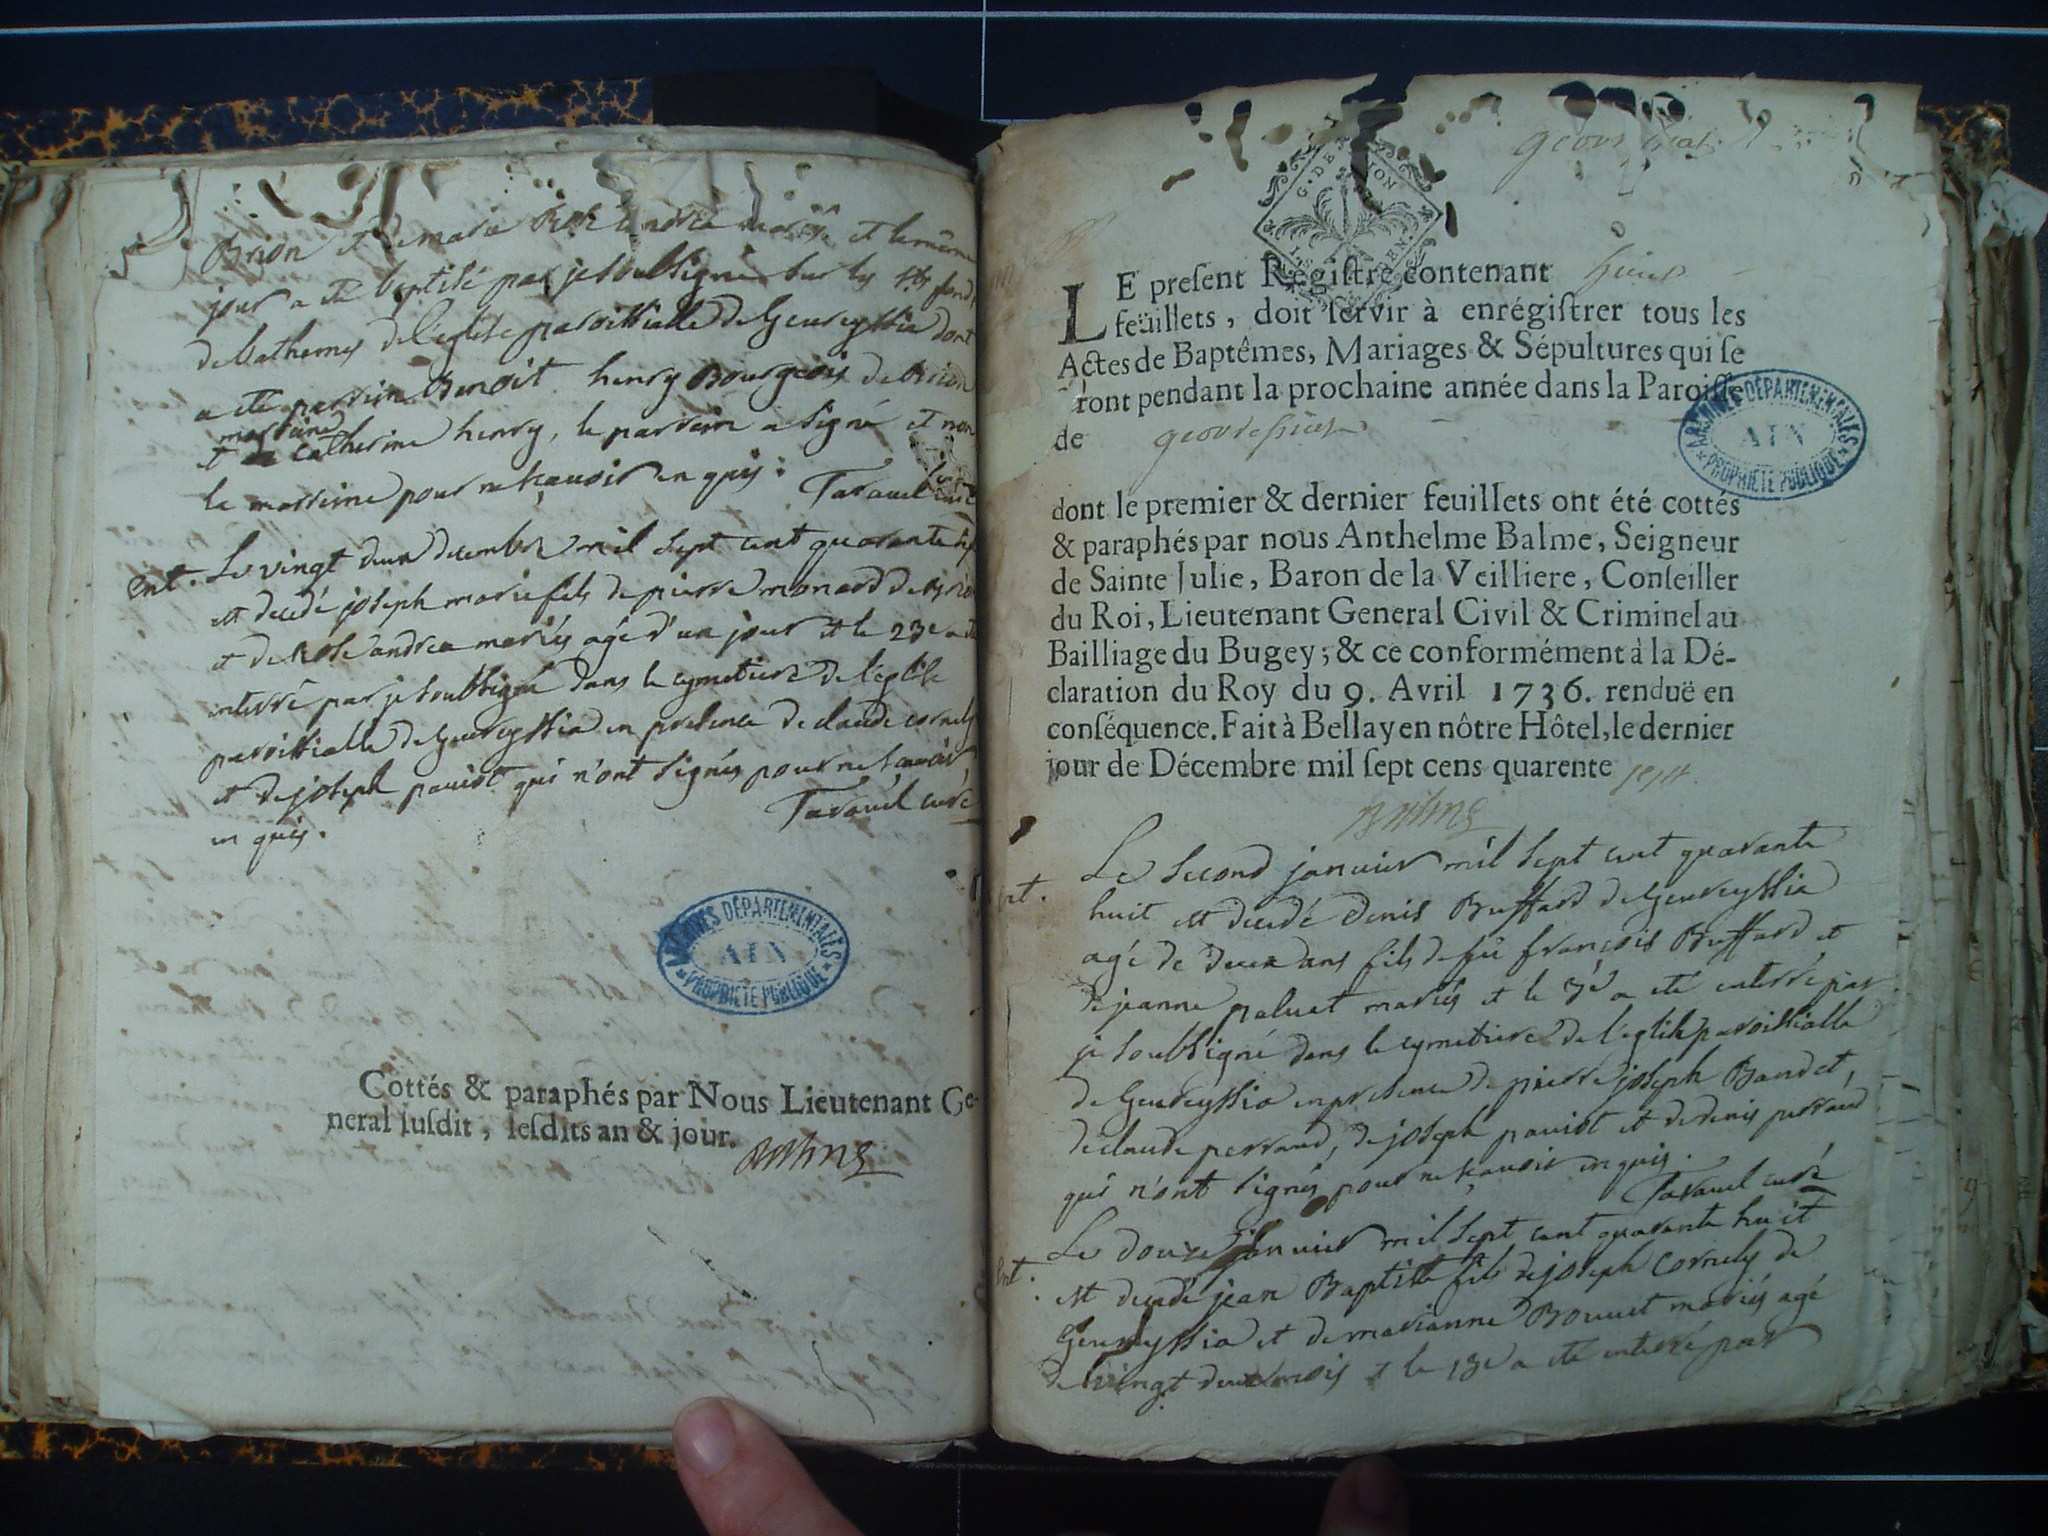 Brion et de marie Rose andrea mariés et le même
jour a été baptisé par je soubsigné sur les fonds
de bathemes de l'eglise paroissialle de Geureyssia dont
a été parrein Benoit henry Bourgeois de Brion
marreine
et catherine henry, le parrein a signé et non
la marreine pour ne sçauoir en quis. Tarauel curé
Ent. Le vingt deux decembre mil sept cent quarante sept
est decedé joseph marie fils de pierre monard de Brion
et de Rose andrea mariés agé d'un jour et le 23e a été
enterré par je soubsigné dans le cymetiere de l'eglise
paroissialle de Geureyssia en presence de claude cornely
et de joseph pauiot qui n'ont signés pour ne scauoir
en quis. Tarauel curé
ARCHIVES DÉPARTEMENTALES
AIN
PROPRIETE PUBLIQUE
Cottés & paraphés par Nous Lieutenant Ge-
neral susdit, lesdits an & jour.
Balme
G. DE DIJON
LE present Régistre contenant huict
feüillets, doit servir à enrégistrer tous les
Actes de Baptêmes, Mariages & Sépultures qui se
ront pendant la prochaine année dans la Paroisse
de geovressiat
ARCHIVES DÉPARTEMENTALES
AIN
PROPRIETE PUBLIQUE
dont le premier & dernier feuillets ont été cottés
& paraphés par nous Anthelme Balme, Seigneur
de Sainte Julie, Baron de la Veilliere, Conseiller
du Roi, Lieutenant General Civil & Criminel au
Bailliage du Bugey; & ce conformément à la Dé-
claration du Roy du 9. Avril 1736. renduë en
conséquence. Fait à Bellay en nôtre Hôtel, le dernier
jour de Décembre mil sept cens quarente sept.
Balme
Ent. Le second januier mil sept cent quarante
huit est decedé denis Buffard de Geureyssia
agé de deux ans fils de fû françois Buffard et
de jeanne paluat mariés et le 3e a été enterré par
je soubsigné dans le cymetiere de l'eglise paroissialle
de Geureyssia en presence de pierre joseph Bandet,
de claude perraud, de joseph pauiot et de denis perraud
qui n'ont signés pour ne sçauoir en quis.
Tarauel curé
Ent. Le douze januier mil sept cent quarante huit
est decedé jean Baptiste fils de joseph cornely de
Geureyssia et de marianne Bouuet mariés agé
de vingt deux mois et le 13e a été enterré par